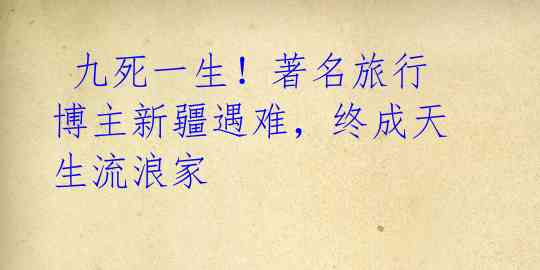 九死一生！著名旅行
博主新疆遇难，终成天
生流浪家